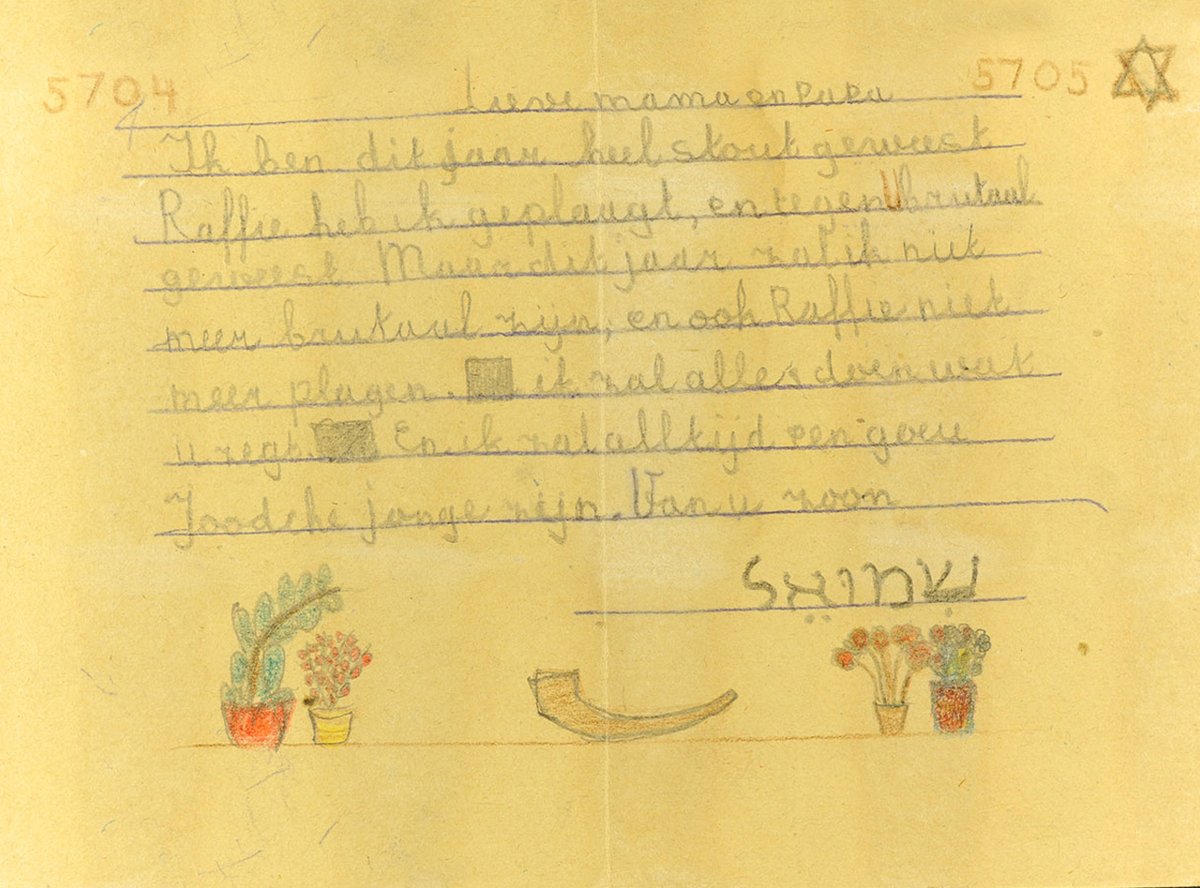 5704 5705
Lieve mama en papa
Ik ben dit jaar heel stout geweest
Raffie heb ik geplaagt, en tegen U brutaal
geweest Maar dit jaar zal ik niet
meer brutaal zijn, en ook Raffie niet
meer plagen. ik zal alles doen wat
u zegt. En ik zal alltijd een goeu
Joodche jonge zijn. Van u zoon
שְׁמוּאֵל